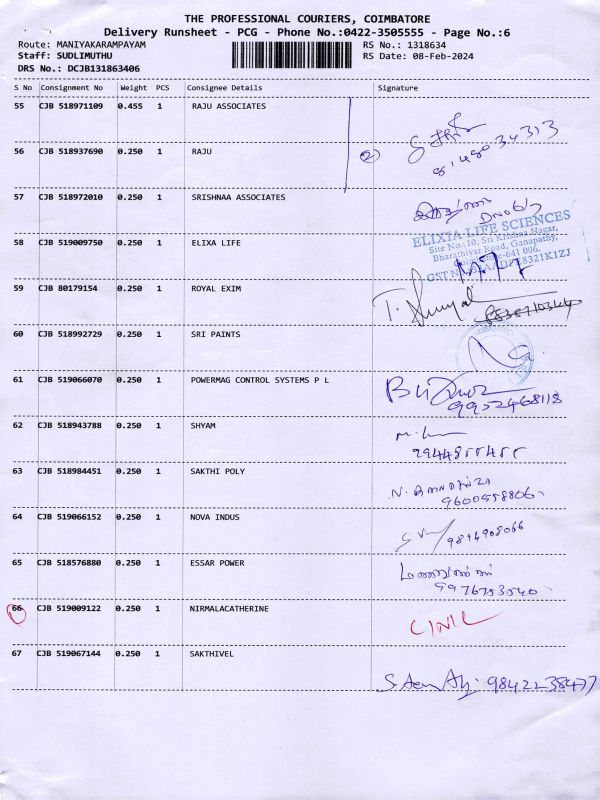 THE PROFESSIONAL COURIERS, COIMBATORE
Delivery Runsheet - PCG - Phone No.:0422-3505555 - Page No.:6
Route: MANIYAKARAMPAYAM RS No.: 1318634
Staff: SUDLIMUTHU RS Date: 08-Feb-2024
DRS No.: DCJB131863406
S No Consignment No Weight PCS Consignee Details Signature
55 CJB 518971109 0.455 1 RAJU ASSOCIATES
56 CJB 518937690 0.250 1 RAJU
57 CJB 518972010 0.250 1 SRISHNAA ASSOCIATES
ELIXTA LIFE SCIENCES
Site No.:10, Sri Krishna Nagar,
Bharathiyar Road, Ganapathy,
58 CJB 519009750 0.250 1 ELIXA LIFE
59 CJB 80179154 1 ROYAL EXIM
60 CJB 518992729 0.250 1 SRI PAINTS
61 CJB 519066070 0.250 1 POWERMAG CONTROL SYSTEMS P L
9952468118
62 CJB 518943788 0.250 1 SHYAM
9944855455
63 CJB 518984451 0.250 1 SAKTHI POLY
9600558806
64 CJB 519066152 0.250 1 NOVA INDUS
9894908066
65 CJB 518576880 0.250 1 ESSAR POWER
9976753540
66 CJB 519009122 0.250 1 NIRMALACATHERINE
67 CJB 519067144 0.250 1 SAKTHIVEL
9842238477